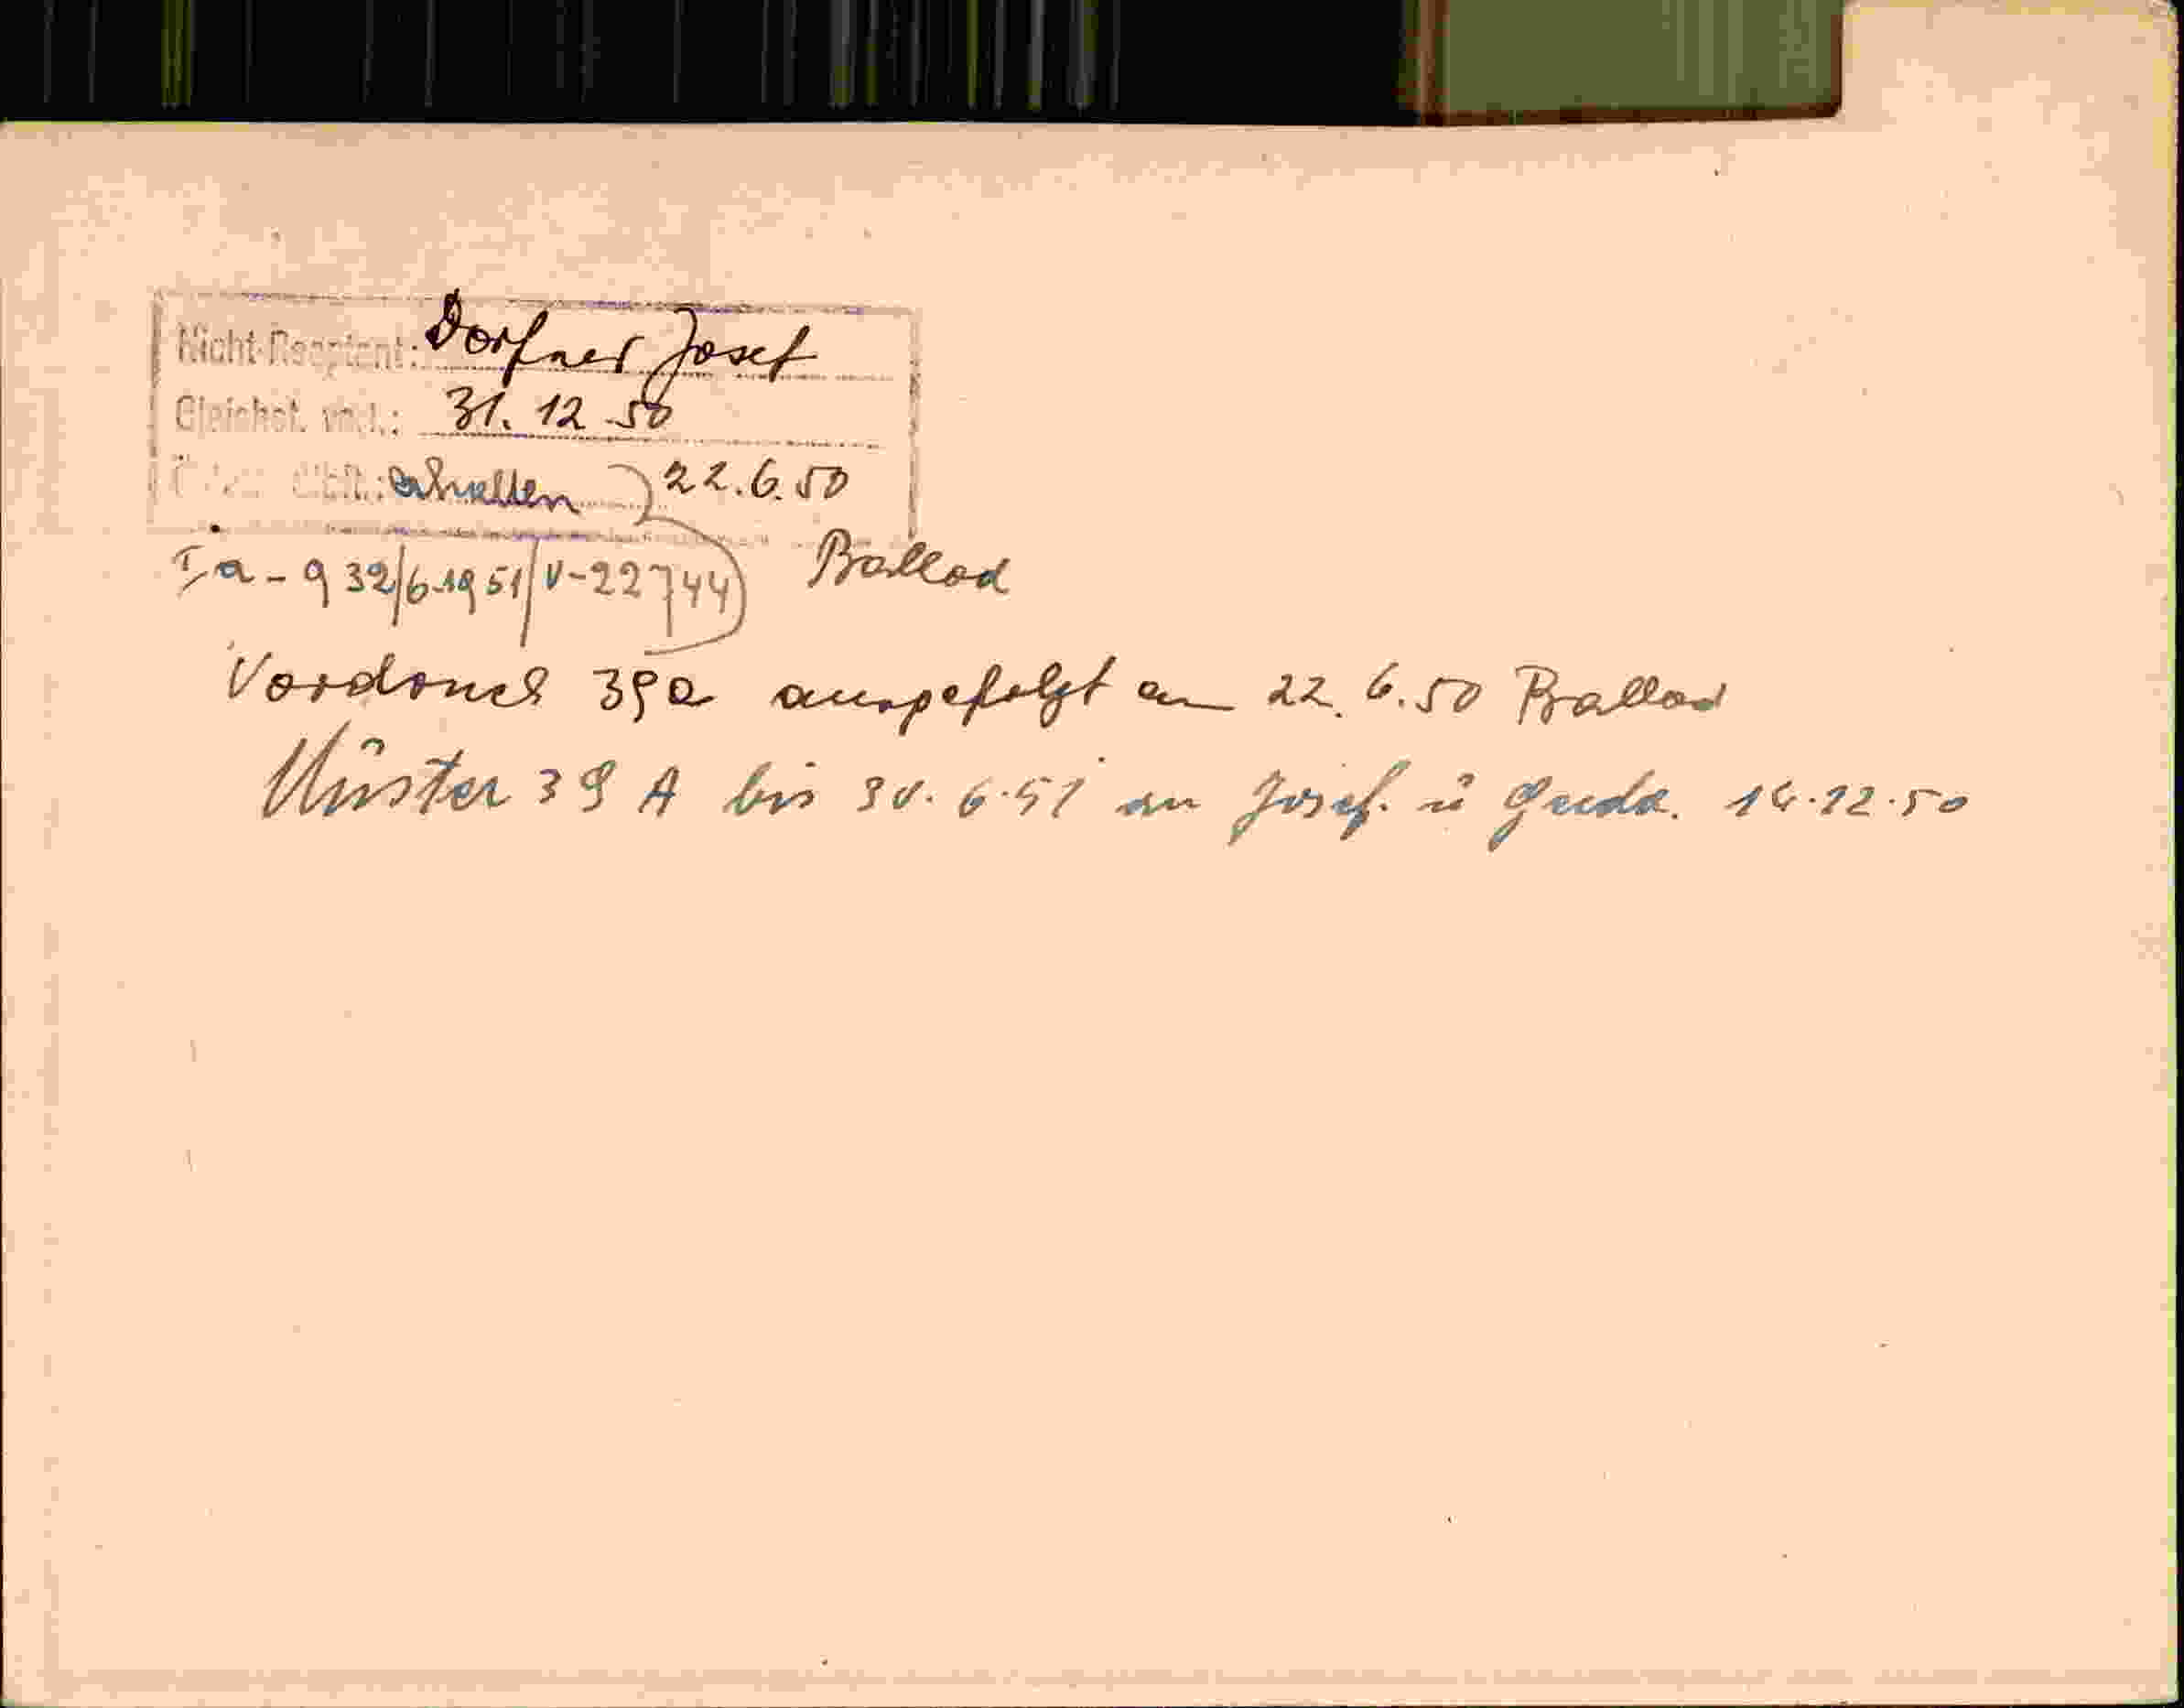 Nicht-Recipient: Dorfner Josef
Gleichst. verl.: 31. 12. 50
erhalten 22.6.50
Ia - 932/6-1951/V-22744) Ballod
Vordruck 39a ausgefolgt am 22. 6. 50 Ballod
Muster 39 A bis 30. 6. 51 an Josef. u 14.12.50